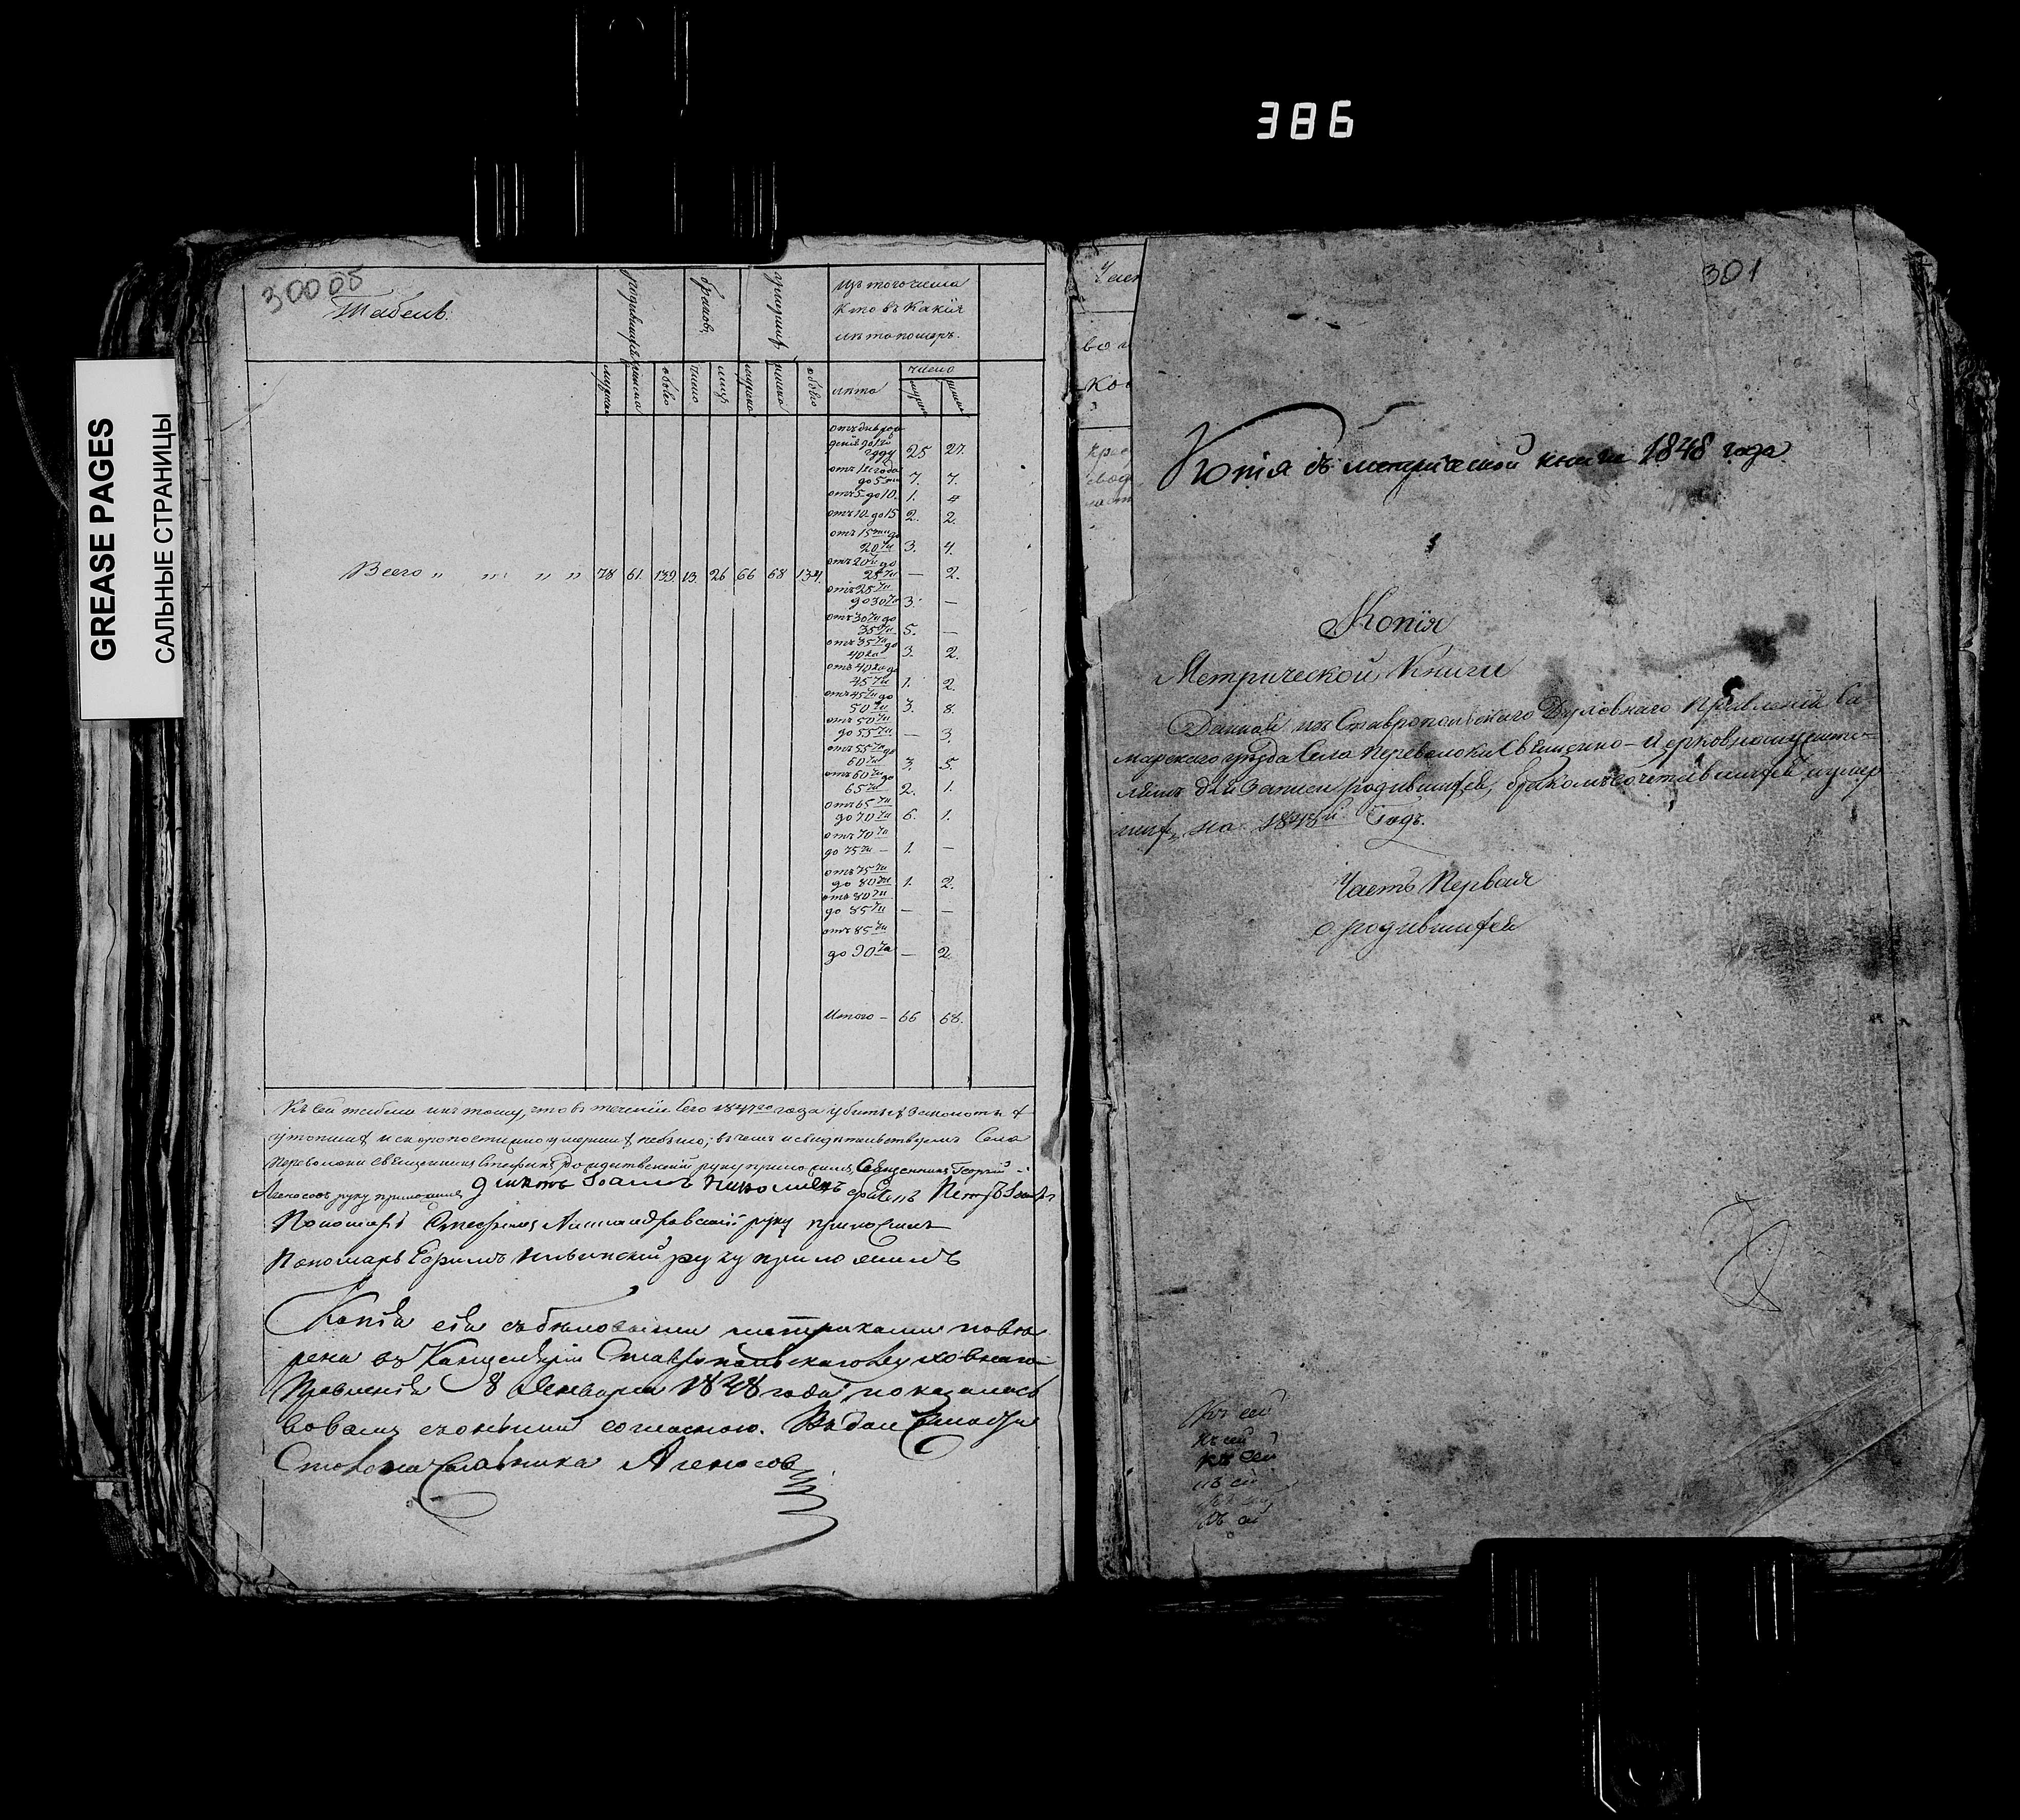 386
GREASE PAGES
САЛЬНЫЕ СТРАНИЦЫ
300 об
Табель.
родившихся
браковъ
умерших
Изъ того числа
кто въ какия
лета померъ.
мужска
женска
обоего
число
лицъ
мужска
женска
обоего
лета
число
отъ дня рож
дения до 1го
году 25 27.
отъ 1го года
до 5ти 7. 7.
отъ 5. до 10. 1. 4
отъ 10. до 15 2. 2.
отъ 15ти до
20ти 3. 4.
отъ 20ти до
25ти — 2.
отъ 25ти
до 30ти 3. —
отъ 30ти до
35ти 5. —
отъ 35ти до
40ка 3. 2.
отъ 40ка до
45ти 1. 2.
отъ 45ти до
50ти 3. 8.
отъ 50ти
до 55ти — 3.
отъ 55ти до
60ти 3. 5.
отъ 60ти до
65ти 2. 1.
отъ 65ти
до 70ти 6. 1.
отъ 70ти
до 75ти — 1. —
отъ 75ти
до 80ти 1. 2.
отъ 80ти
до 85ти — —
отъ 85ти
до 90та — 2.
Всего „ „ „ „ 78 61. 139. 13. 26 66 68 134.
Итого — 66 68.
Къ сей табели въ томъ, что въ течении сего 1847го года убитых
утопших и скоропостижно умерших небыло; въ чемъ и свидетельствуемъ Села
Переволоки священникъ Стефанъ Рождественский руку приложилъ, Священникъ Георгий
Агеносовъ руку приложилъ
Пономарь Стефанъ Александровский руку приложилъ
Пономарь Ефимъ Ильинский руку приложилъ
Копия сия съ беловыми метриками пове
рена въ Канцелярии Ставропольскаго Духовнаго
Правления 8 Января 1848 года, и оказалась
во всемъ съ оными согласною.
Столоначальника Агеносов
301
Копия съ метрической книги 1848 года
Копія
Метрической Книги
Данной изъ Ставропольскаго Духовнаго Правленія Са
марскаго уезда Села Переволоки Священно-Церковнослужите-
лямъ для записи родившихся, бракомъ сочетавшихся и умер
ших, на 1848й Годъ.
Часть Первая
о родившихся
Къ сей
Къ сей
Къ сей
Къ сей